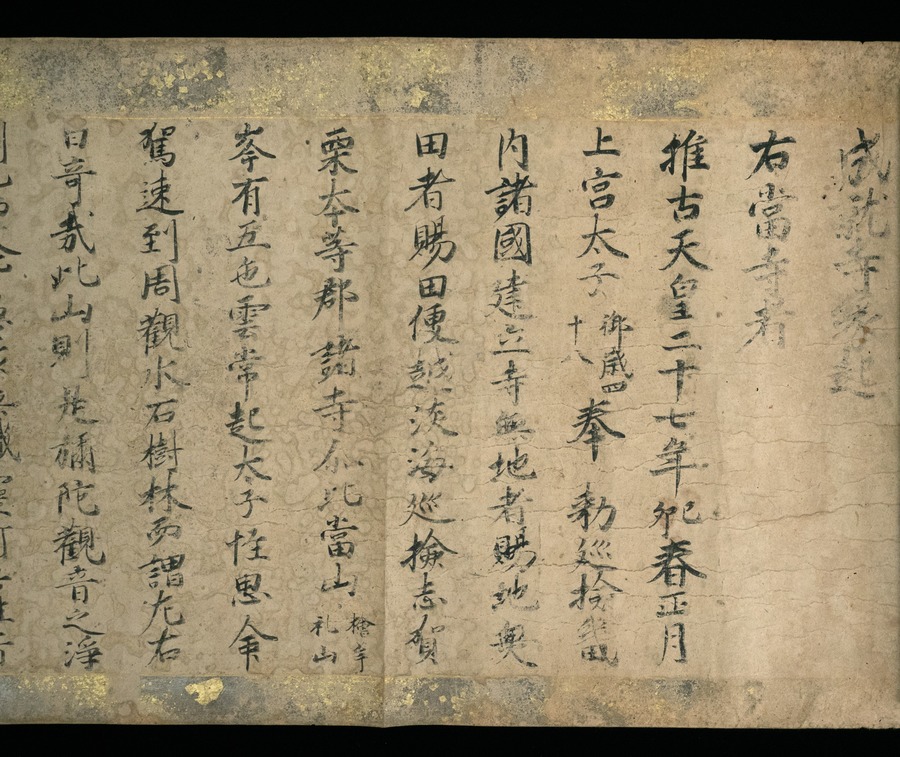 成就寺縁起
右當寺者
推古天皇二十七年己卯春正月
上宮太子御歳四十八奉勅巡撿畿
内諸國建立寺無地者賜地無
田者賜田便越淡海巡撿志賀
栗夲等郡諸寺尒此當山檜牟礼山
岑有五色雲常起太子恠思命
駕速到周觀水石樹林而謂左右
曰奇哉此山則是彌陀觀音之淨